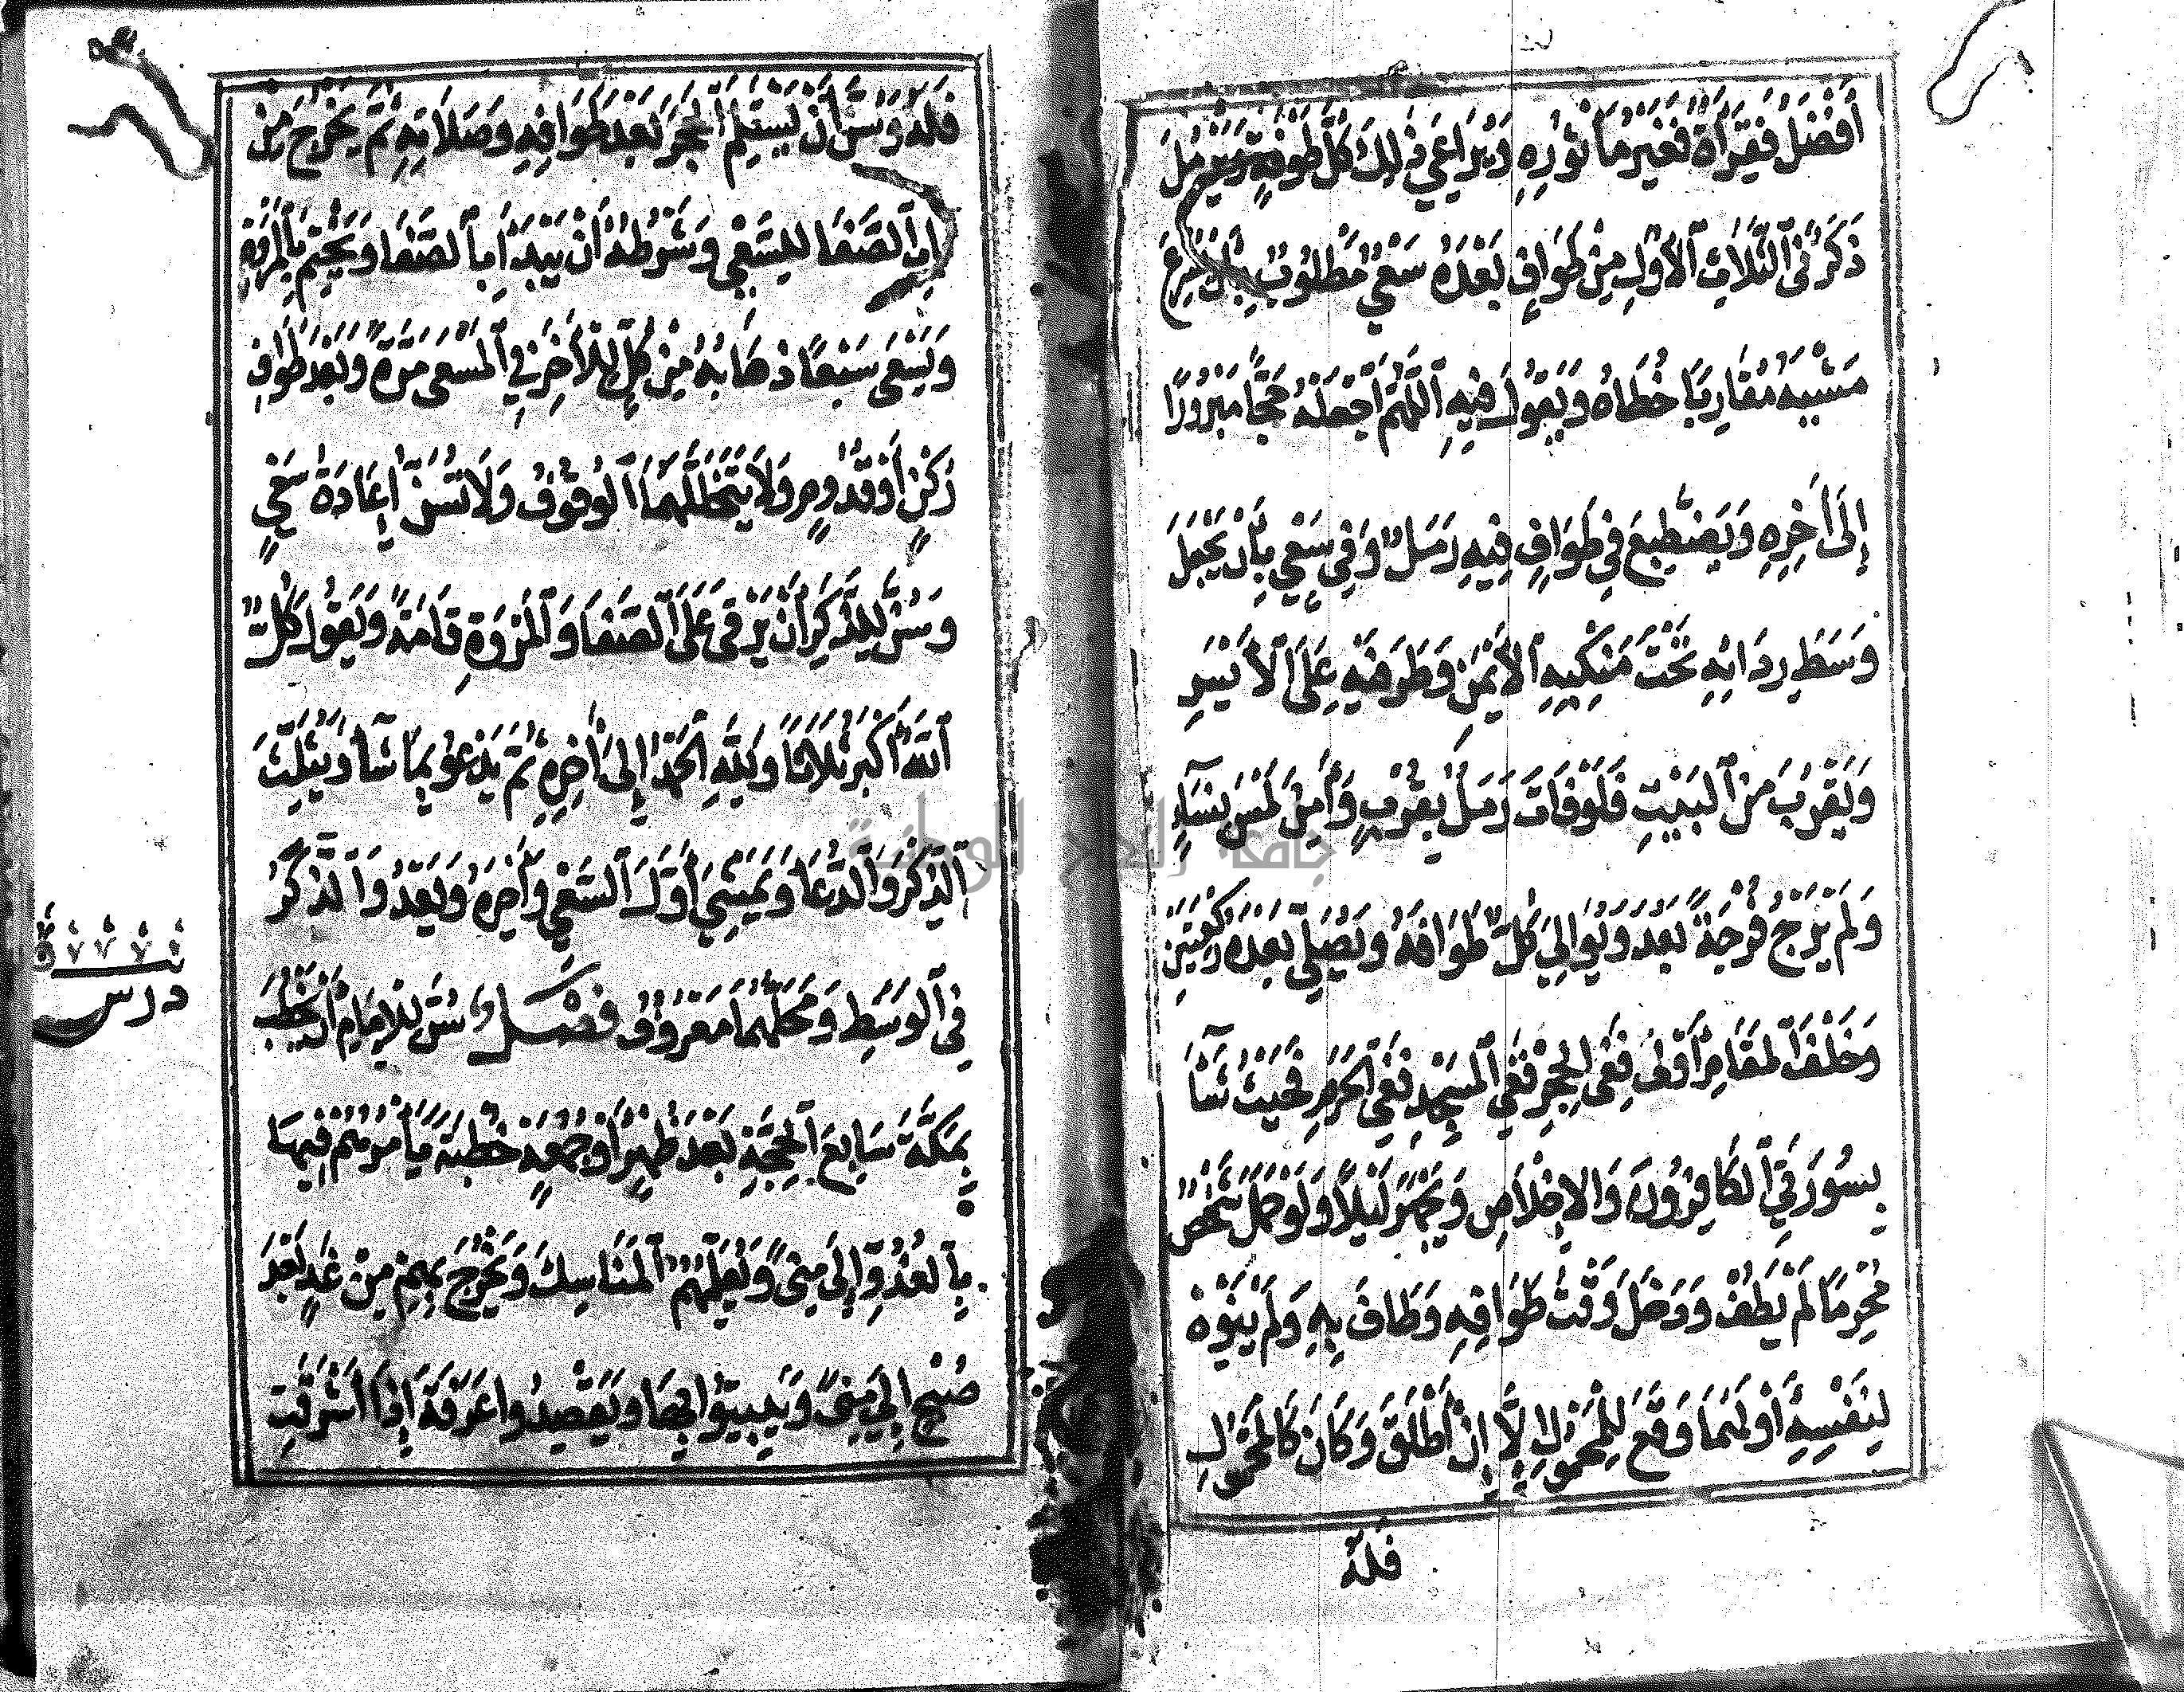 أَفْضَلُ فَقِرَأَةٌ فَغَيْرُ مَأْثُورِهِ وَيُرَاعِي ذٰلِكَ كُلَّ طَوْفَةٍ وَيَرْمُلَ
ذَكَرٌ فِي ٱلثَّلَاثِ ٱلْأُوَلِ مِنْ طَوَافٍ بَعْدَهُ سَعْيٌ مَطْلُوبٌ بِأَنْ يُسْرِعَ
مَشْيَهُ مُقَارِبًا خُطَاهُ وَيَقُولُ فِيهِ ٱللَّهُمَّ ٱجْعَلْهُ حَجًّا مَبْرُورًا
إِلَى أٰخِرِهِ وَيَضْطَبِعَ فِي طَوَافٍ فِيهِ رَمَلٌ وَفِي سَعْيٍ بِأَنْ يَجْعَلَ
وَسَطَ رِدَائِهِ تَحْتَ مَنْكِبِهِ ٱلْأَيْمَنِ وَطَرَفَيْهِ عَلَى ٱلْأَيْسَرِ
وَيَقْرُبَ مِنَ ٱلْبَيْتِ فَلَوْ فَاتَ رَمَلٌ بِقُرْبٍ وَأَمِنَ لَمْسَ نِسَآءٍ
وَلَمْ يَرْجُ فُرْجَةً بَعُدَ وَيُوَالِيَ كُلٌّ طَوَافَهُ وَيُصَلِّيَ بَعْدَهُ رَكْعَتَيْنِ
وَخَلْفَ ٱلْمَقَامِ أَوْلَى فَفِي ٱلْحِجْرِ فَفِي ٱلْمَسْجِدِ فَفِي ٱلْحَرَمِ فَحَيْثُ شَآءَ
بِسُورَتَيِ ٱلْكَافِرُونَ وَالْإِخْلَاصِ وَيَجْهَرَ لَيْلًا وَلَوْ حَمَلَ شَخْصٌ
مُحْرِمًا لَمْ يَطُفْ وَدَخَلَ وَقْتُ طَوَافِهِ وَطَافَ بِهِ وَلَمْ يَنْوِهْ
لِنَفْسِهِ أَوْ لَهُمَا وَقَعَ لِلْمَحْمُولِ إِلَّا إِنْ أَطْلَقَ وَكَانَ كَالْمَحْمُولِ
فَلَهُ
فَلَهُ وَسُنَّ أَنْ يَسْتَلِمَ ٱلْحَجَرَ بَعْدَ طَوَافِهِ وَصَلَاتِهِ ثُمَّ يَخْرُجَ مِنْ
بَابِ ٱلصَّفَا لِلسَّعْيِ وَشَرْطُهُ أَنْ يَبْدَأَ بِالصَّفَا وَيَخْتِمَ بِٱلْمَرْوَةِ
وَيَسْعَى سَبْعًا ذَهَابُهُ مِنْ كُلٍّ لِلْأٰخَرِ فِي ٱلْمَسْعَى مَرَّةً وَبَعْدَ طَوَافِ
رُكْنٍ أَوْ قُدُومٍ وَلَا يَتَخَلَّلُهُمَا ٱلْوُقُوفُ وَلَا تُسَنُّ إِعَادَةُ سَعْيٍ
وَسُنَّ لِلذَّكَرِ أَنْ يَرْقَى عَلَى ٱلصَّفَا وَٱلْمَرْوَةِ قَامَةً وَيَقُولَ كُلٌّ
ٱللَّهُ أَكْبَرُ ثَلَاثًا وَلِلَّهِ ٱلْحَمْدُ إِلَى أٰخِرِهِ ثُمَّ يَدْعُوَ بِمَا شَآءَ وَيُثَلِّثَ
ٱلذِّكْرَ وَٱلدُّعَاءَ وَيَمْشِيَ أَوَّلَ ٱلسَّعْيِ وَأٰخِرَهُ وَيَعْدُوَ ٱلذَّكَرُ
فِي ٱلْوَسَطِ وَمَحَلُّهُمَا مَعْرُوفٌ فَصْلٌ سُنَّ لِلْإِمَامِ أَنْ يَخْطُبَ
بِمَكَّةَ سَابِعَ ٱلْحِجَّةِ بَعْدَ ظُهْرٍ أَوْ جُمُعَةٍ خُطْبَةً يَأْمُرُهُمْ فِيهَا
بِٱلْغُدُوِّ إِلَى مِنًى وَيُعَلِّمُهُمُ ٱلْمَنَاسِكَ وَيَخْرُجَ بِهِمْ مِنْ غَدٍ بَعْدَ
صُبْحٍ إِلَى مِنًى وَيَبِيتُوا بِهَا وَيَقْصِدُوا عَرَفَةَ إِذَا أَشْرَقَتِ
درس
جامعة النجاح الوطنية